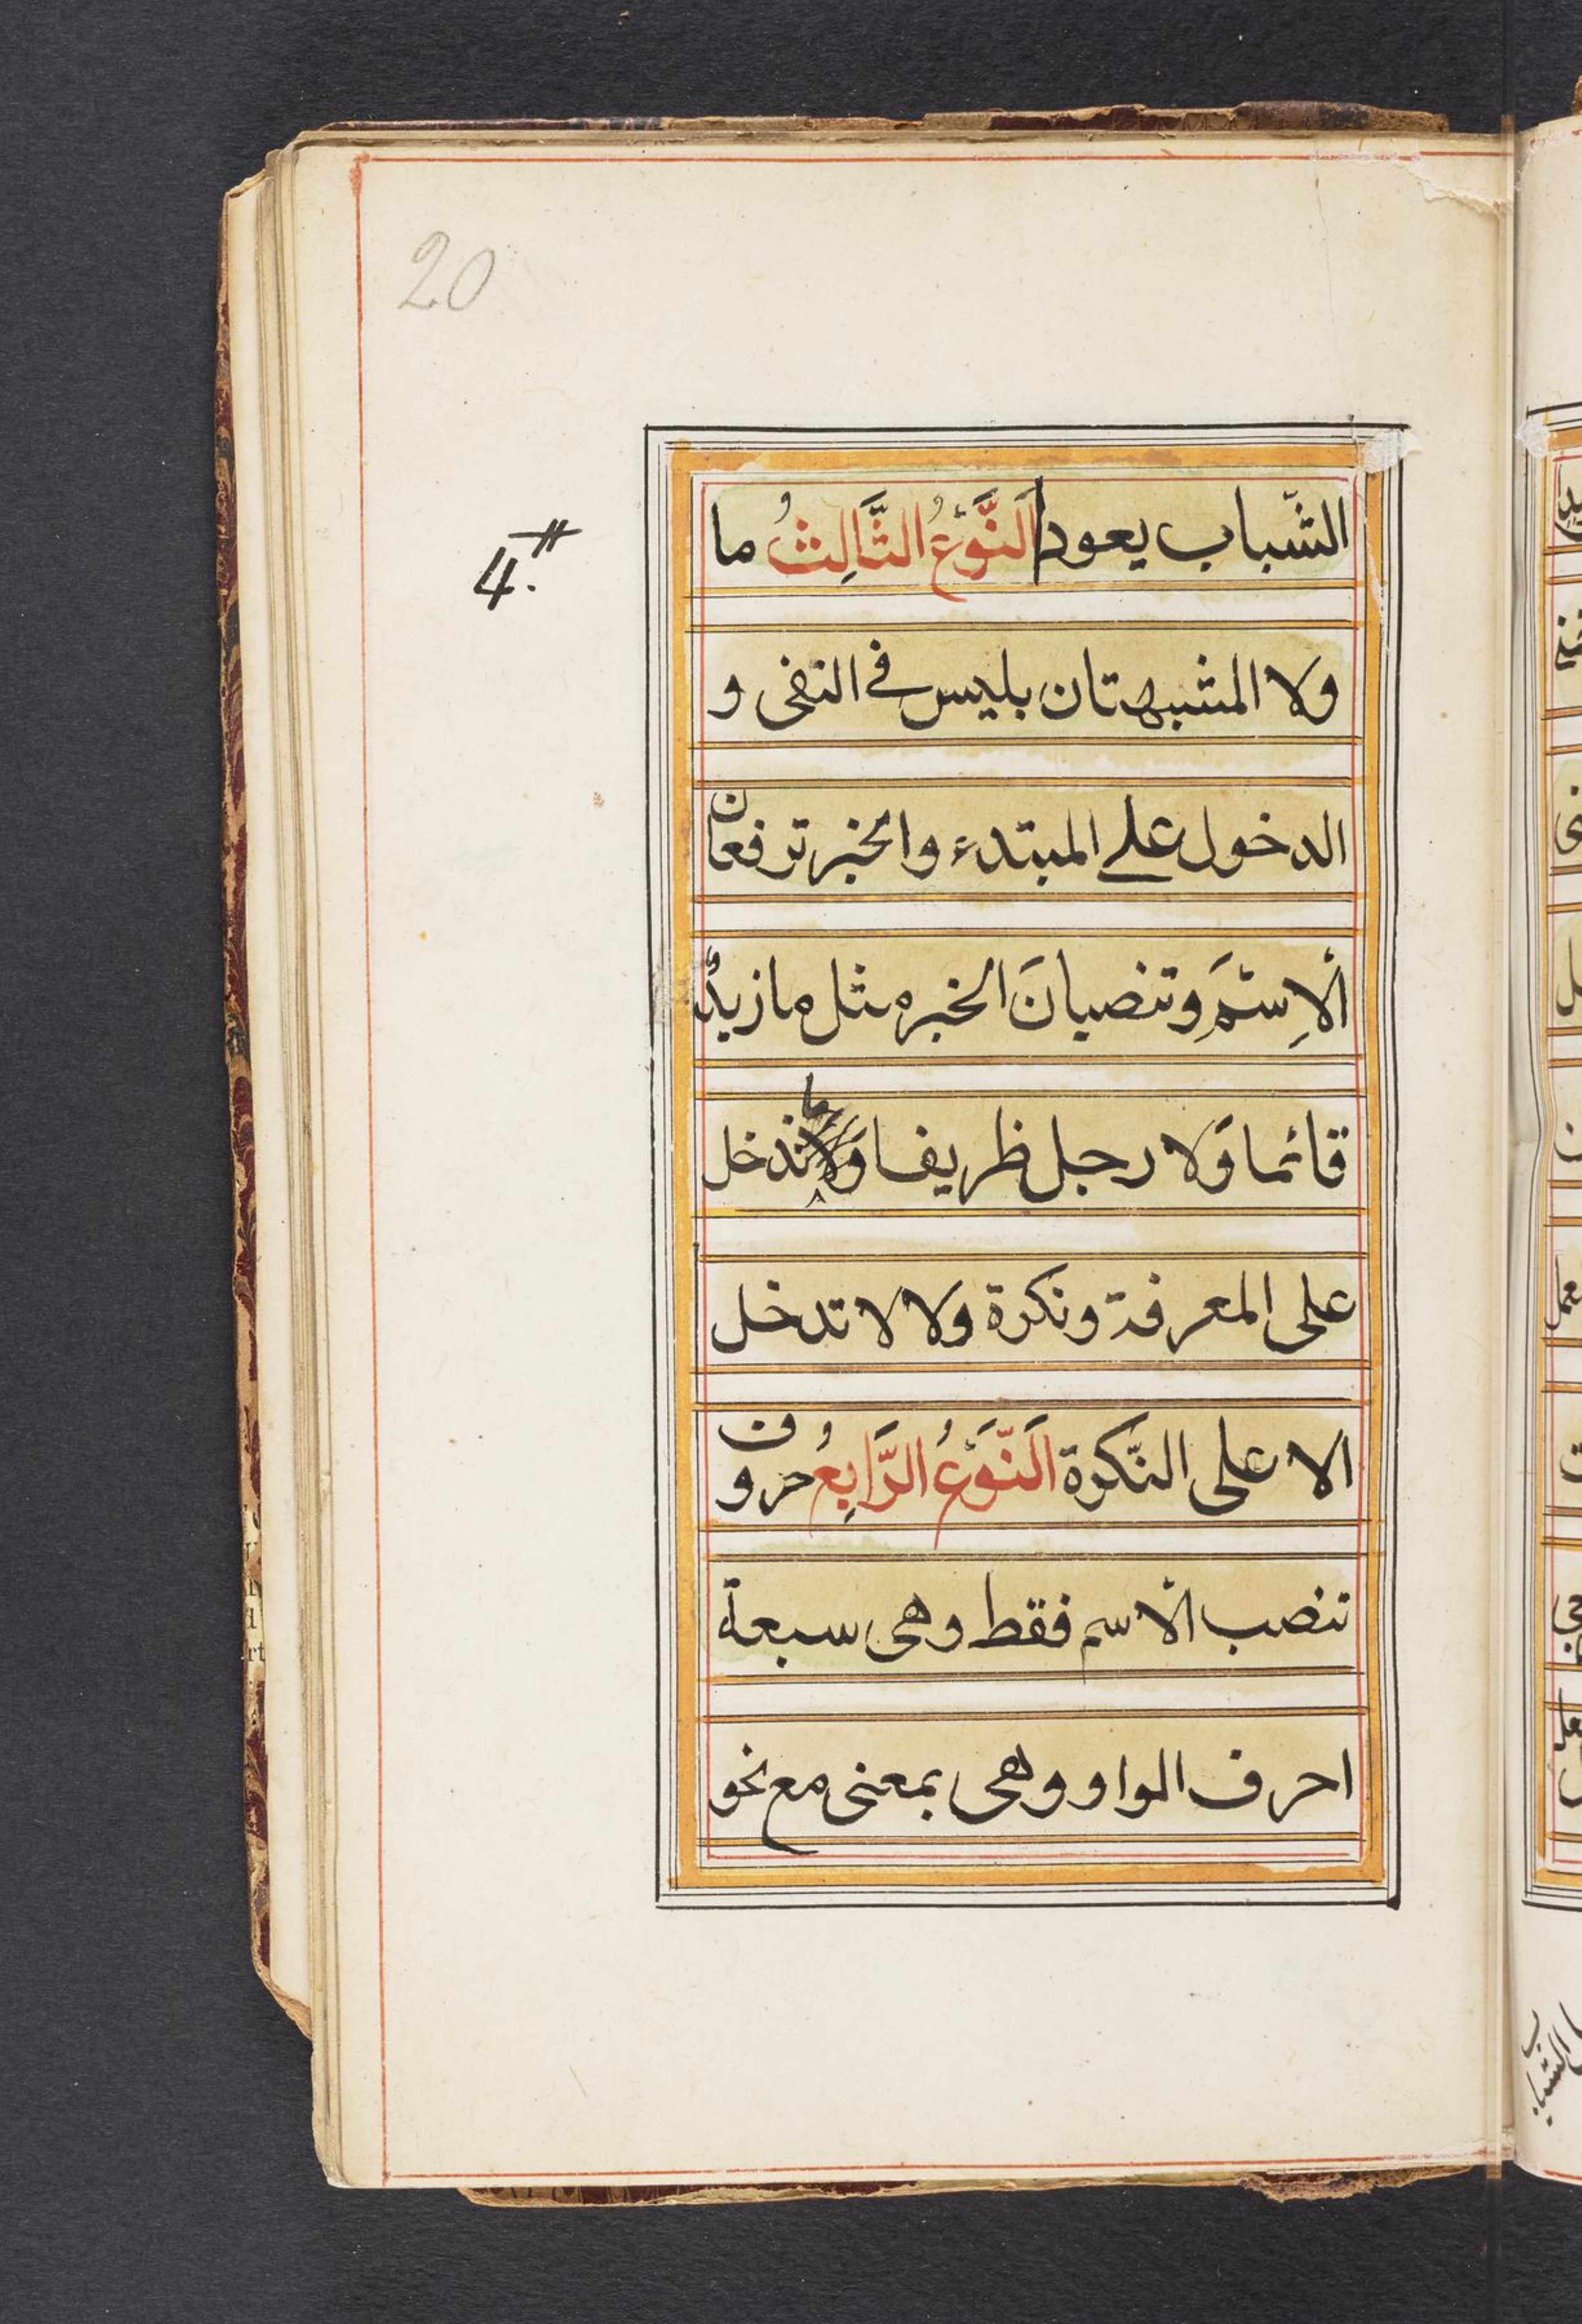 20
4.
الشّباب يعود اَلنَّوْعُ الثَّالِثُ ما
ولا المشبهتان بليس في النفى و
الدخول على المبتدء والخبر ترفعان
ألاِسْمَ وتنصبانَ الخبر مثل ما زيدٌ
قائما وَلا رجل ظريفا وَما تدخل
على المعرفة ونكرة ولا لا تدخل
الا على النّكرة اَلنَّوْعُ الرَّابِعُ حروف
تنصب الاسم فقط وهى سبعة
احرف الواو وهى بمعنى مع نحو